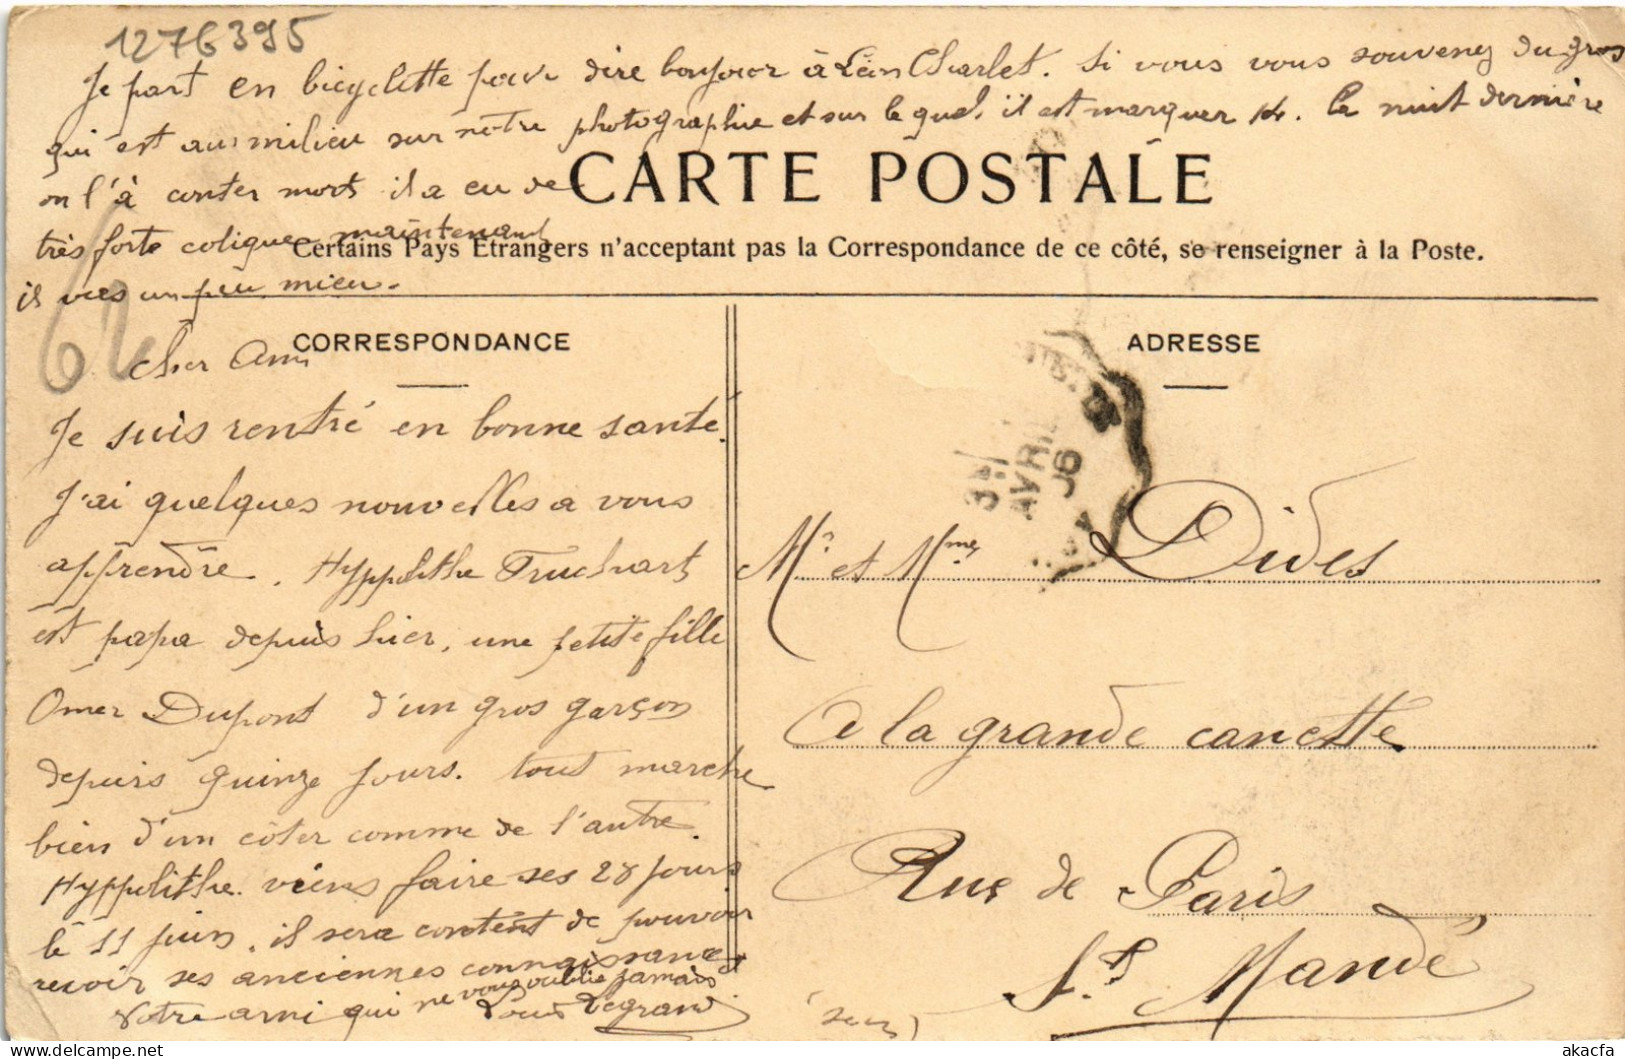 1276395
Je part en bicyclette pour dire bonjour à Léon Charlet. Si vous vous souvenez du gros
qui est au milieu sur notre photographie et sur le quel il est marquer 14. la nuit dernière
on l'à conter mort il a eu de
CARTE POSTALE
très forte colique maintenant
Certains Pays Etrangers n'acceptant pas la Correspondance de ce côté, se renseigner à la Poste.
il vas un peu mieu.
62
CORRESPONDANCE
Cher Ami
Je suis rentré en bonne santé.
J'ai quelques nouvelles a vous
apprendre. Hyppolithe Truchart
est papa depuis hier, une petite fille
Omer Dupont d'un gros garçon
depuis quinze jours. tout marche
bien d'un côter comme de l'autre.
Hyppolithe viens faire ses 28 jours
le 11 juin. il sera content de pouvoir
revoir ses anciennes connaissances
Votre ami qui ne vous oublie jamais
Louis Legrand
ADRESSE
AVRIL
06
Mr et Mme Dides
A la grande canette
Rue de Paris
St Mandé
(Seine)
akacfa